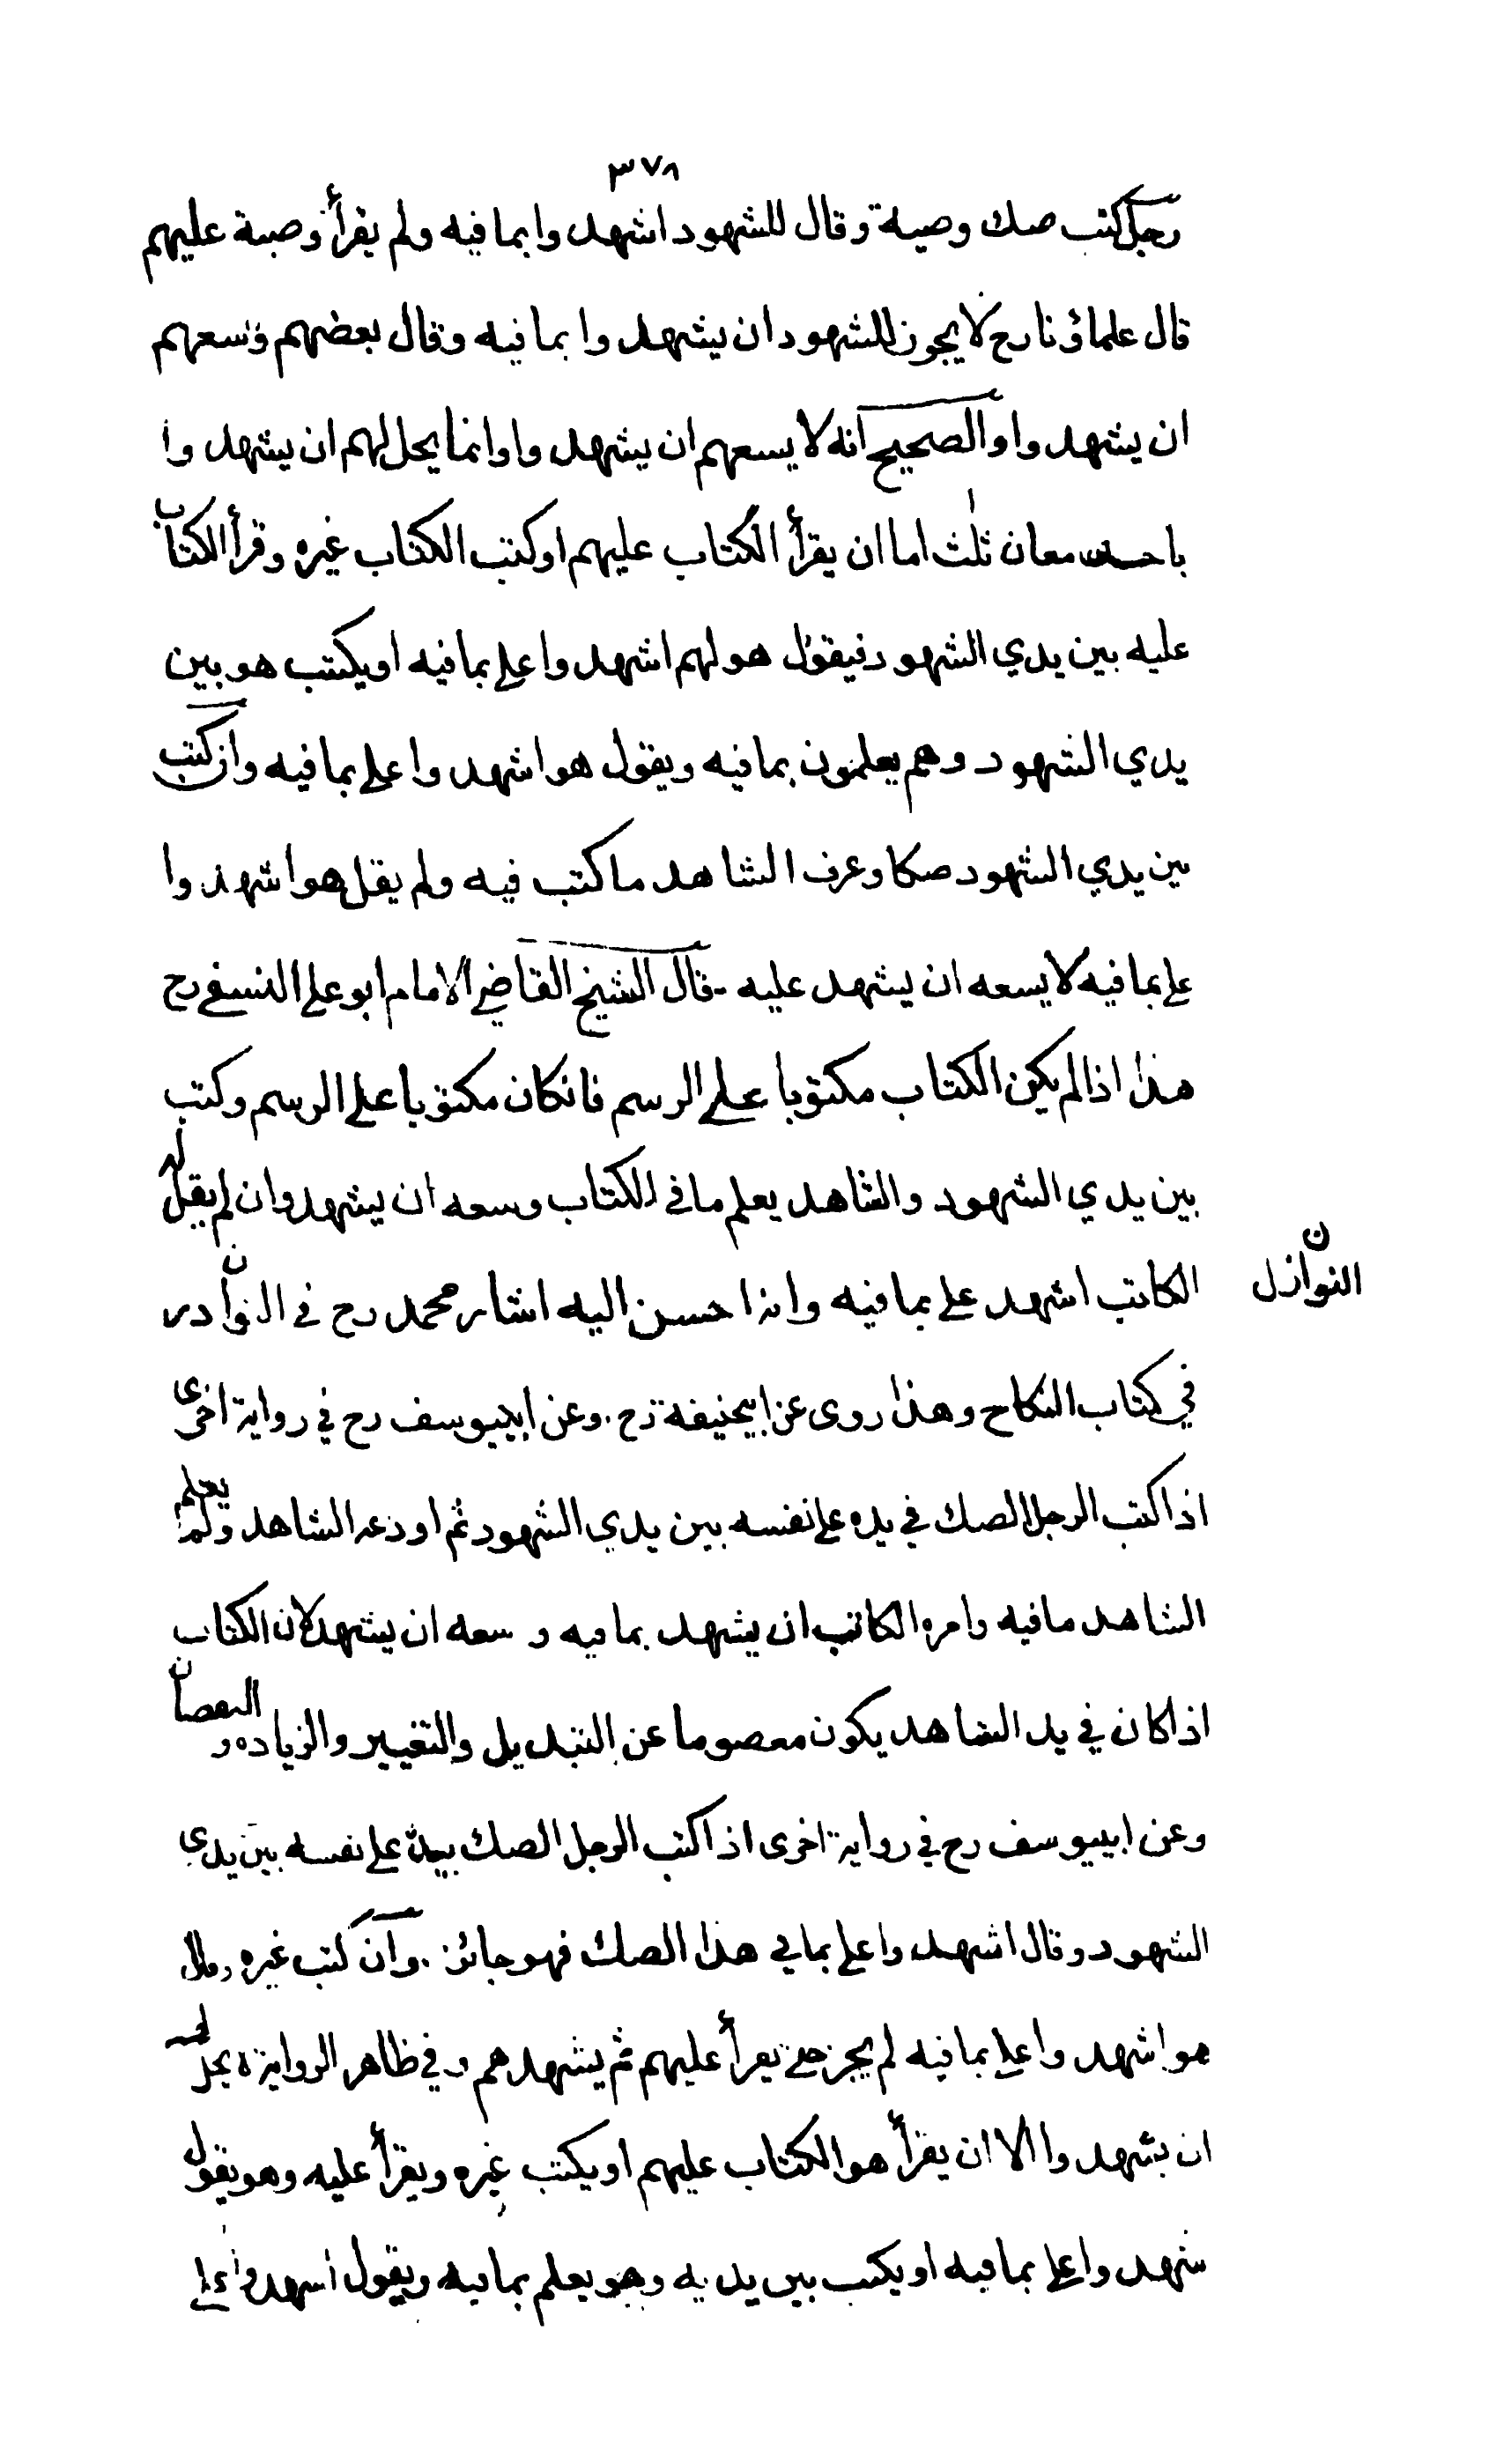 ٣٧٨
رجل كتب صك وصية وقال للشهود اشهدوا بما فيه ولم يقرأ وصية عليهم
قال علماؤنا رح لا يجوز للشهود ان يشهدوا بما فيه وقال بعضهم وسعهم
ان يشهدوا والصحيح انه لا يسعهم ان يشهدوا وانما يحل لهم ان يشهدوا
باحدى معان ثلث اما ان يقرأ الكتاب عليهم او كتب الكتاب غيره وقرأ الكتاب
عليه بين يدي الشهود فيقول هو لهم اشهدوا علي بما فيه او يكتب هو بين
يدي الشهود وهم يعلمون بما فيه ويقول هو اشهدوا علي بما فيه وان كتب
بين يدي الشهود صكا وعرف الشاهد ما كتب فيه ولم يقل هو اشهدوا
علي بما فيه لا يسعه ان يشهد عليه - قال الشيخ القاضي الامام ابو علي النسفي رح
هذا اذا لم يكن الكتاب مكتوبا على الرسم فانكان مكتوبا على الرسم وكتب
بين يدي الشهود والشاهد يعلم ما في الكتاب وسعه ان يشهد وان لم يقل له
الكاتب اشهد علي بما فيه وهذا حسن اليه اشار محمد رح في النوادر
النوازل ن
في كتاب النكاح وهذا روى عن ابيحنيفة رح . وعن ابييوسف رح في رواية اخرى
اذا كتب الرجل الصك في يده على نفسه بين يدي الشهود ثم اودعه الشاهد ولم يعلم
الشاهد ما فيه وامره الكاتب ان يشهد بما فيه وسعه ان يشهد لان الكتاب
اذا كان في يد الشاهد يكون معصوما عن التبديل والتغيير والزياده والنقصان
وعن ابييوسف رح في رواية اخرى اذا كتب الرجل الصك بيده على نفسه بين يدي
الشهود وقال اشهدوا علي بما في هذا الصك فهو جائز . وان كتب غيره وقال
هو اشهدوا علي بما فيه لم يجز حتى يقرأ عليهم ثم يشهدهم وفي ظاهر الرواية لا يحل لهم
ان يشهدوا الا ان يقرأ هو الكتاب عليهم او يكتب غيره ويقرأ عليه وهو يقول
شهدوا علي بما فيه او يكتب بين يديه وهو يعلم بما فيه ويقول اشهدوا علي